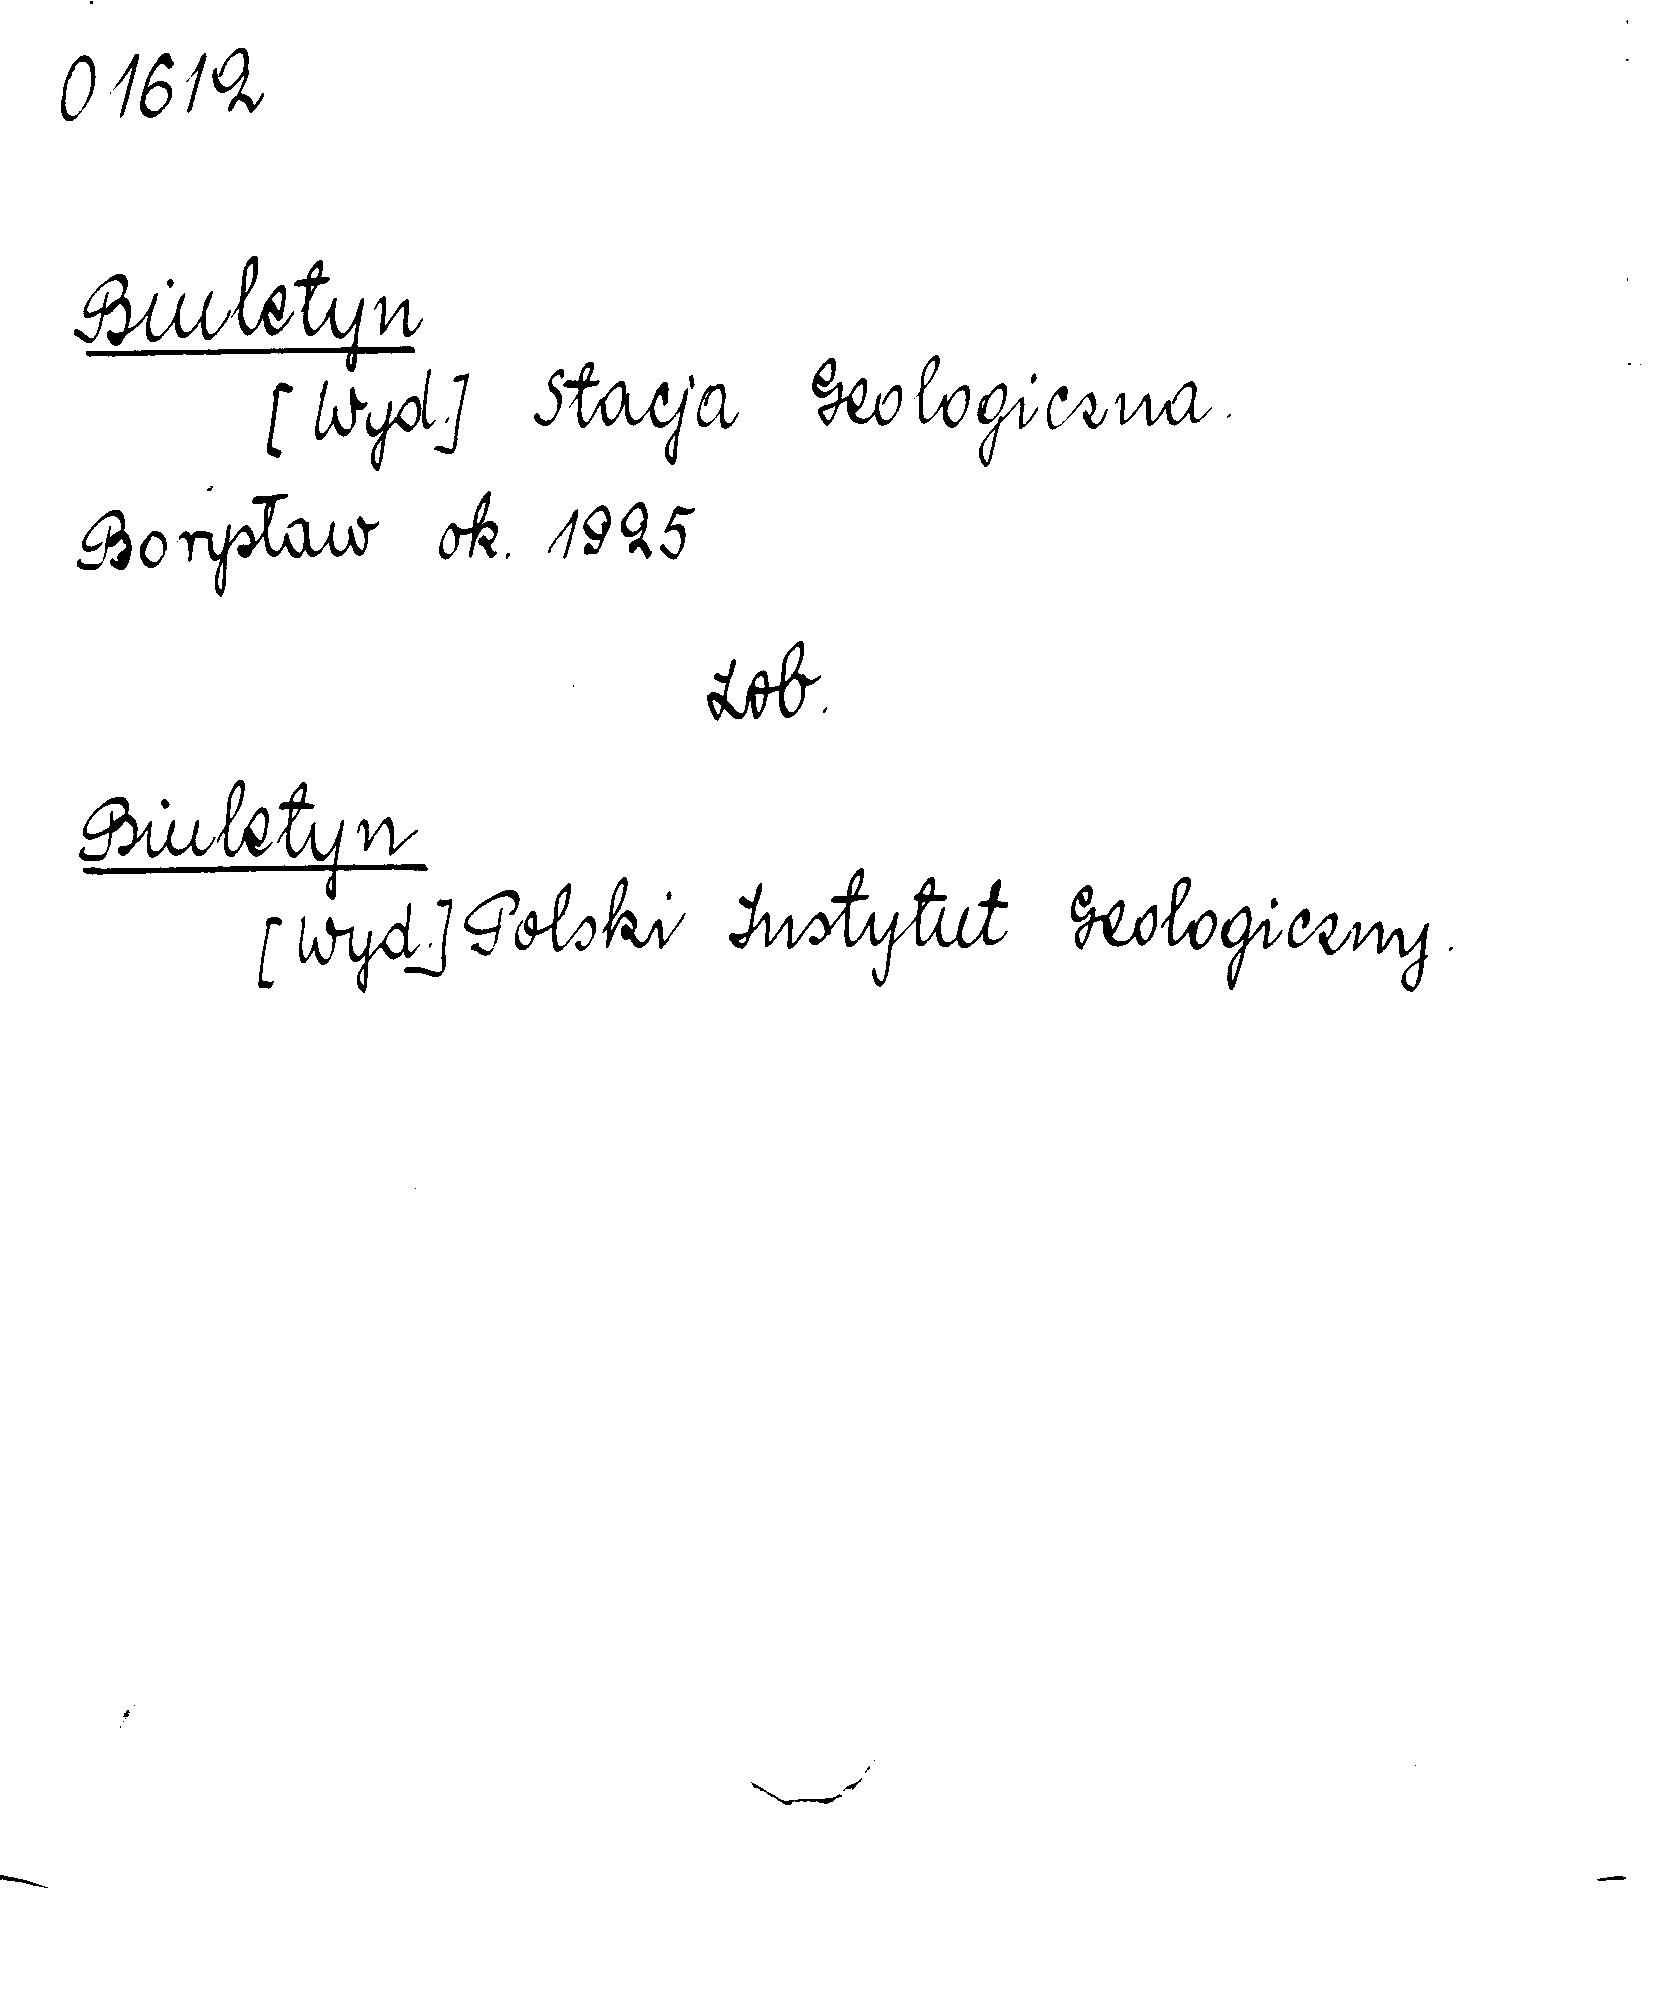 01612
Biuletyn
[Wyd.] Stacja Geologiczna.
Borysław ok. 1925
Zob.
Biuletyn
[Wyd.] Polski Instytut Geologiczny.